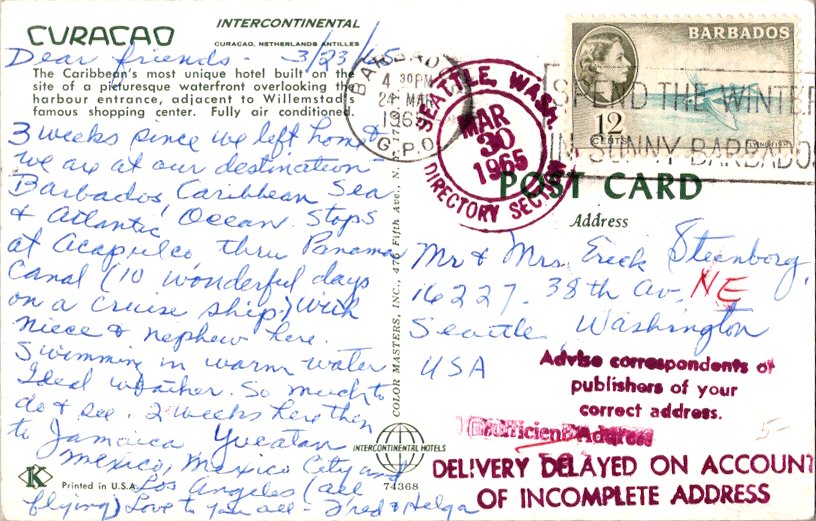 CURAÇAO
INTERCONTINENTAL
CURAÇAO, NETHERLANDS ANTILLES
The Caribbean's most unique hotel built on the
site of a picturesque waterfront overlooking the
harbour entrance, adjacent to Willemstad's
famous shopping center. Fully air conditioned.
Dear friends - 3/23/65
3 weeks since we left home &
we are at our destination
Barbados, Caribbean Sea
& Atlantic Ocean. Stops
at Acapulco thru Panama
Canal (10 wonderful days
on a cruise ship.) With
niece & nephew here.
Swimming in warm water
Ideal weather. So much to
do & see. 2 weeks here then
to Jamaica Yucatan
Mexico, Mexico City and
Los Angeles (all
flying) Love to you all - Fred & Helga
K
Printed in U.S.A.
COLOR MASTERS, INC., 476 Fifth Ave., N.Y. 17
INTERCONTINENTAL HOTELS
74368
BARBADOS
4 30PM
24 MAR
1965
G.P.O.
SEATTLE, WASH.
MAR
30
1965
DIRECTORY SECTION
SPEND THE WINTER
IN SUNNY BARBADOS
BARBADOS
12
CENTS
FLYINGFISH
POST CARD
Address
Mr & Mrs. Erick Steenborg,
16227 - 38th Av. NE
Seattle, Washington
USA
Advise correspondents or
publishers of your
correct address.
Insufficient Address
DELIVERY DELAYED ON ACCOUNT
OF INCOMPLETE ADDRESS
5-